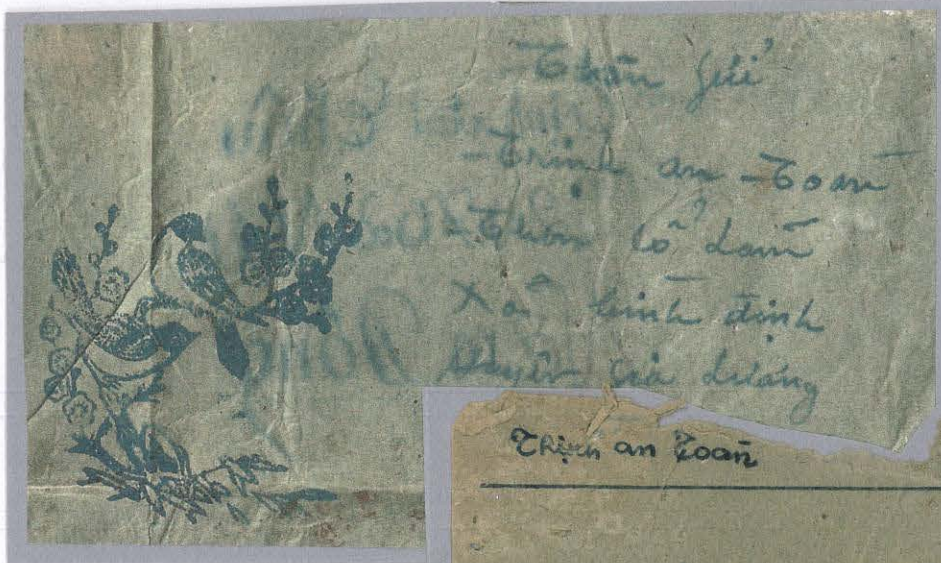 Thân gửi
Trịnh an Toàn
Thôn cổ Lãm
Xã bình định
Huyện Gia Lương
Thịnh an Toàn